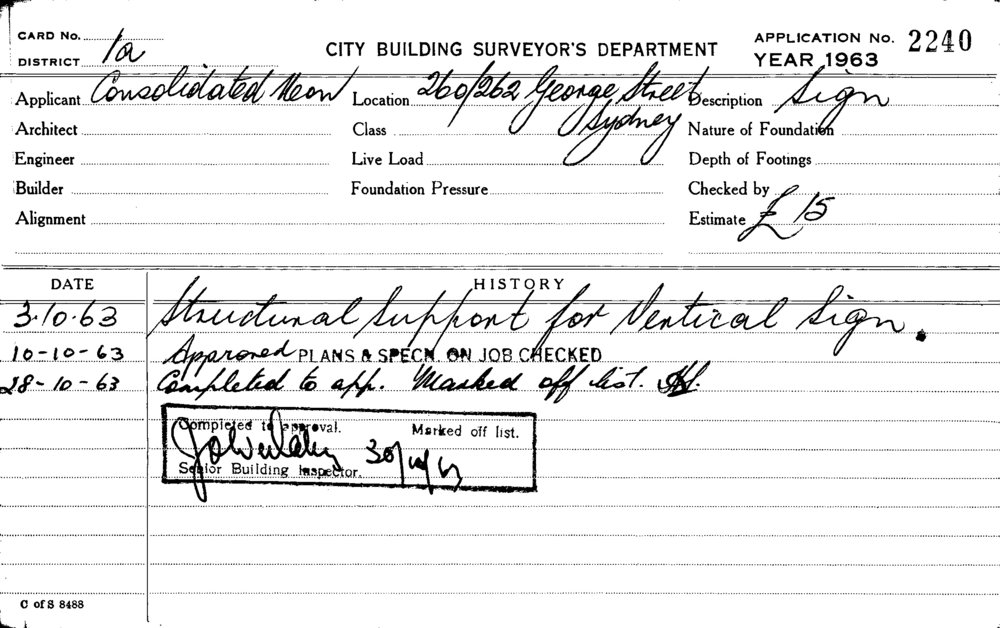 CARD No.
CITY BUILDING SURVEYOR'S DEPARTMENT
APPLICATION No. 2240
DISTRICT 1a
YEAR 1963
Applicant Consolidated Neon
Location 260/262 George Street Sydney
Description Sign
Architect
Class
Nature of Foundation
Engineer
Live Load
Depth of Footings
Builder
Foundation Pressure
Checked by
Alignment
Estimate £ 15
DATE
HISTORY
3.10.63 Structural Support for Vertical Sign.
10-10-63 Approved PLANS & SPECN. ON JOB CHECKED
28-10-63 Completed to app. Marked off list.
Completed to approval. Marked off list.
30/10/63
Senior Building Inspector.
C of S 8488